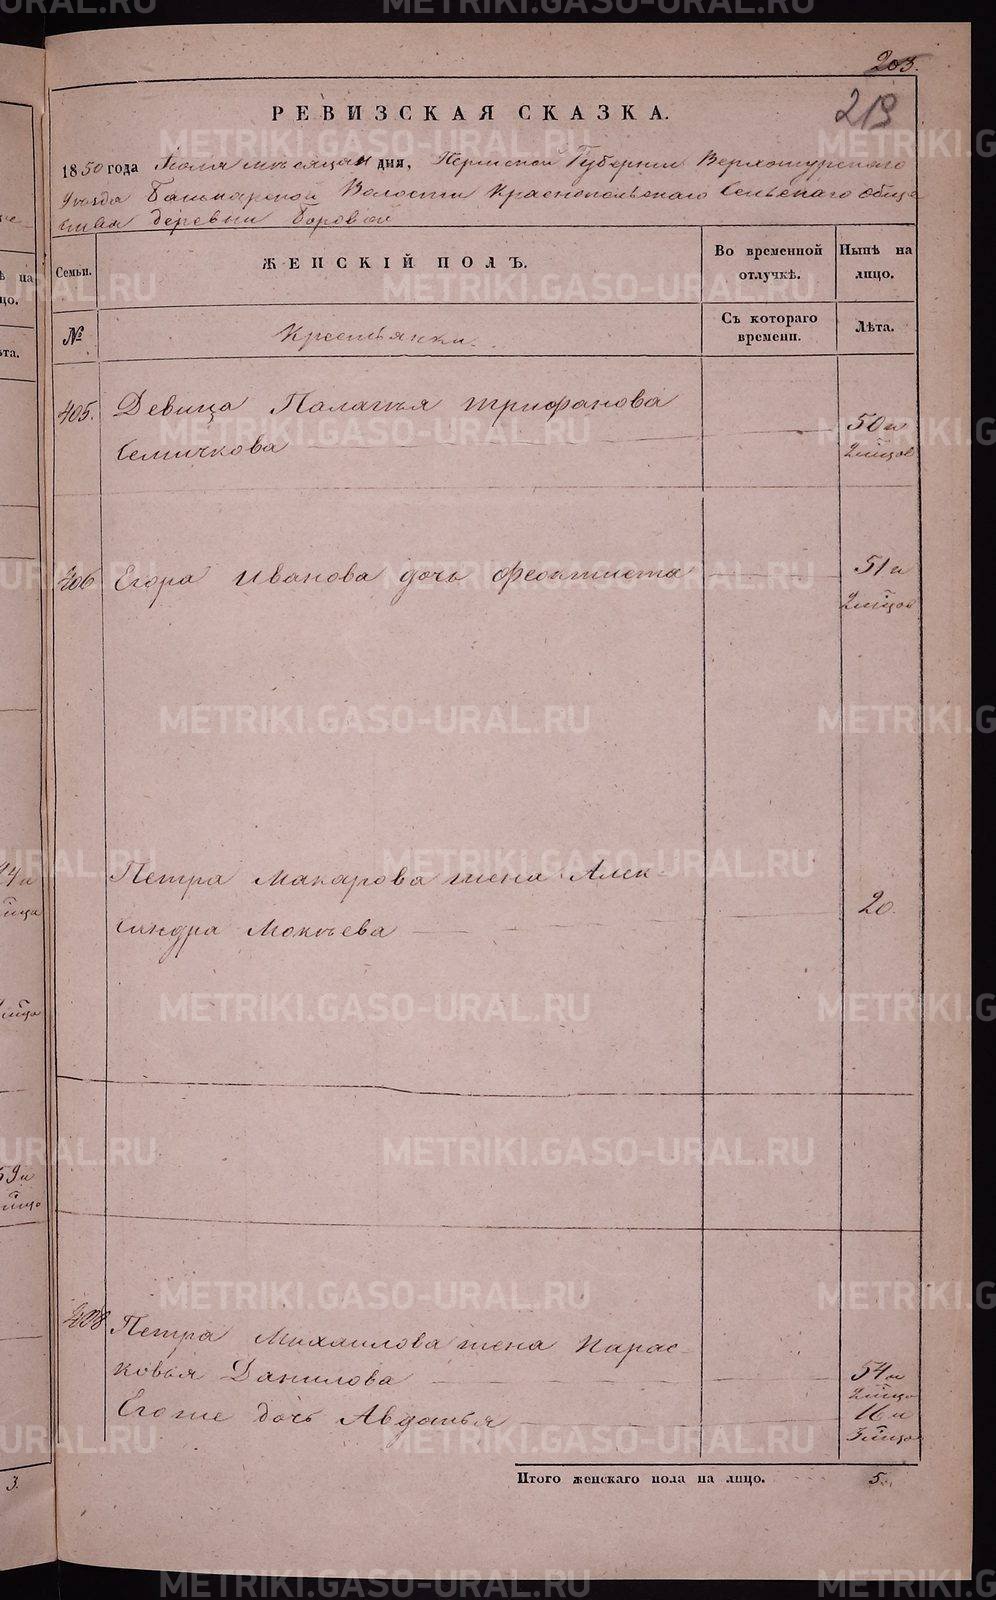 203.
219
РЕВИЗСКАЯ СКАЗКА.
1850 года Июля месяца дня, Пермской Губернии Верхотурского
Уезда Башкарской Волости Краснопольскаго Сельскаго обще
ства деревни Боровой
Семьи.
ЖЕНСКІЙ ПОЛЪ.
Во временной отлучкѣ.
Нынѣ на лицо.
№
Крестьянки.
Съ котораго времени.
Лѣта.
405.
Девица Палагья трифанова
Семичкова
50 и
2 м͞цов
406
Егора Иванова дочь феоктиста
51 и
2 м͞цов
Петра Макарова жена Алек-
сандра Мокѣева
20.
408
Петра Михаилова жена Парас-
ковья Данилова
54 и
2 м͞ца
Его же дочь Авдотья
16 и
3 м͞цов
Итого женскаго пола на лицо.
5.
METRIKI.GASO-URAL.RU